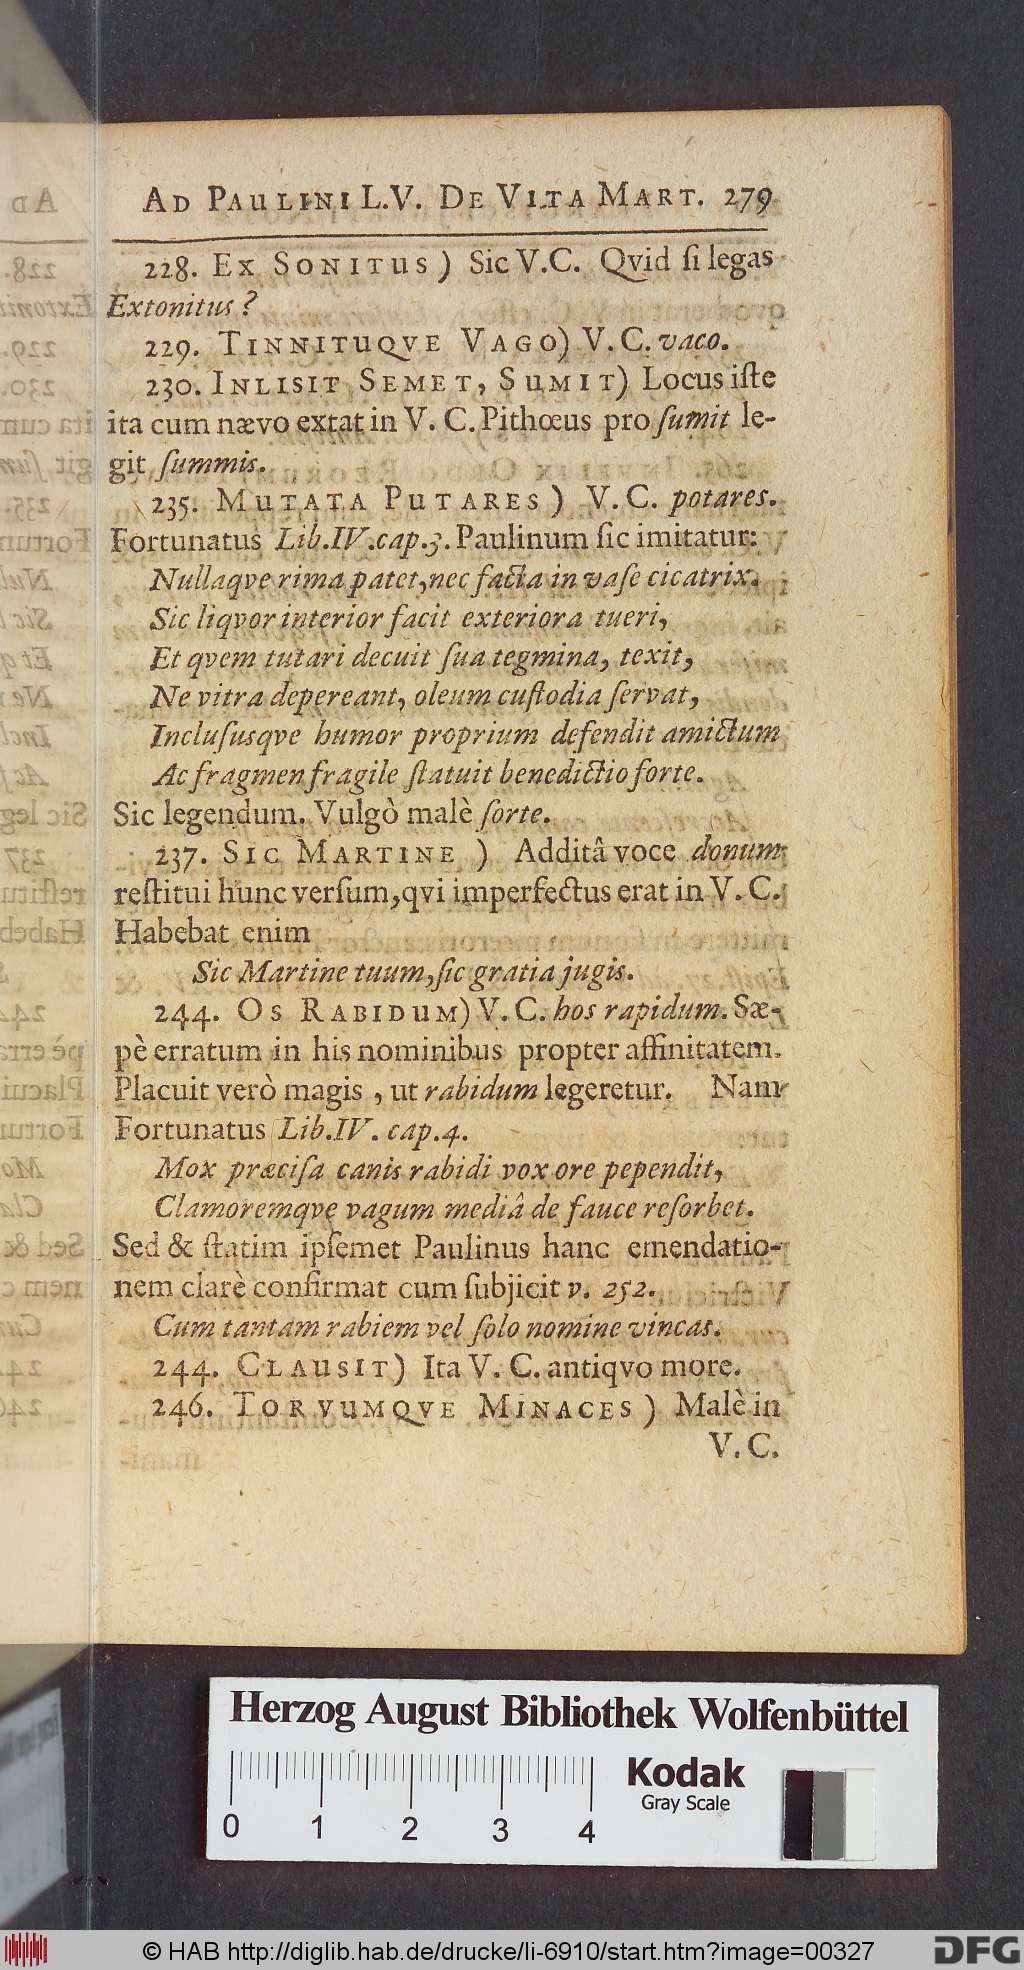 AD PAULINI L.V. DE VITA MART. 279
228. EX SONITUS) Sic V.C. Qvid ſi legas
Extonitus?
229. TINNITUQVE VAGO) V.C. vaco.
230. INLISIT SEMET, SUMIT) Locus iſte
ita cum nævo extat in V. C. Pithœus pro ſumit le-
git ſummis.
235. MUTATA PUTARES) V.C. potares.
Fortunatus Lib.IV.cap.3. Paulinum ſic imitatur:
Nullaqve rima patet, nec facta in vaſe cicatrix.
Sic liqvor interior facit exteriora tueri,
Et qvem tutari decuit ſua tegmina, texit,
Ne vitra depereant, oleum cuſtodia ſervat,
Incluſusqve humor proprium defendit amictum
Ac fragmen fragile ſtatuit benedictio forte.
Sic legendum. Vulgò malè ſorte.
237. SIC MARTINE) Additâ voce donum
reſtitui hunc verſum, qvi imperfectus erat in V. C.
Habebat enim
Sic Martine tuum, ſic gratia jugis.
244. OS RABIDUM) V. C. hos rapidum. Sæ-
pè erratum in his nominibus propter affinitatem.
Placuit verò magis, ut rabidum legeretur. Nam
Fortunatus Lib.IV. cap.4.
Mox præciſa canis rabidi vox ore pependit,
Clamoremqve vagum mediâ de fauce reſorbet.
Sed & ſtatim ipſemet Paulinus hanc emendatio-
nem clarè confirmat cum ſubjicit v. 252.
Cum tantam rabiem vel ſolo nomine vincas.
244. CLAUSIT) Ita V. C. antiqvo more.
246. TORVUMQVE MINACES) Malè in
V. C.
Herzog August Bibliothek Wolfenbüttel
Kodak
Gray Scale
0 1 2 3 4
© HAB http://diglib.hab.de/drucke/li-6910/start.htm?image=00327
DFG